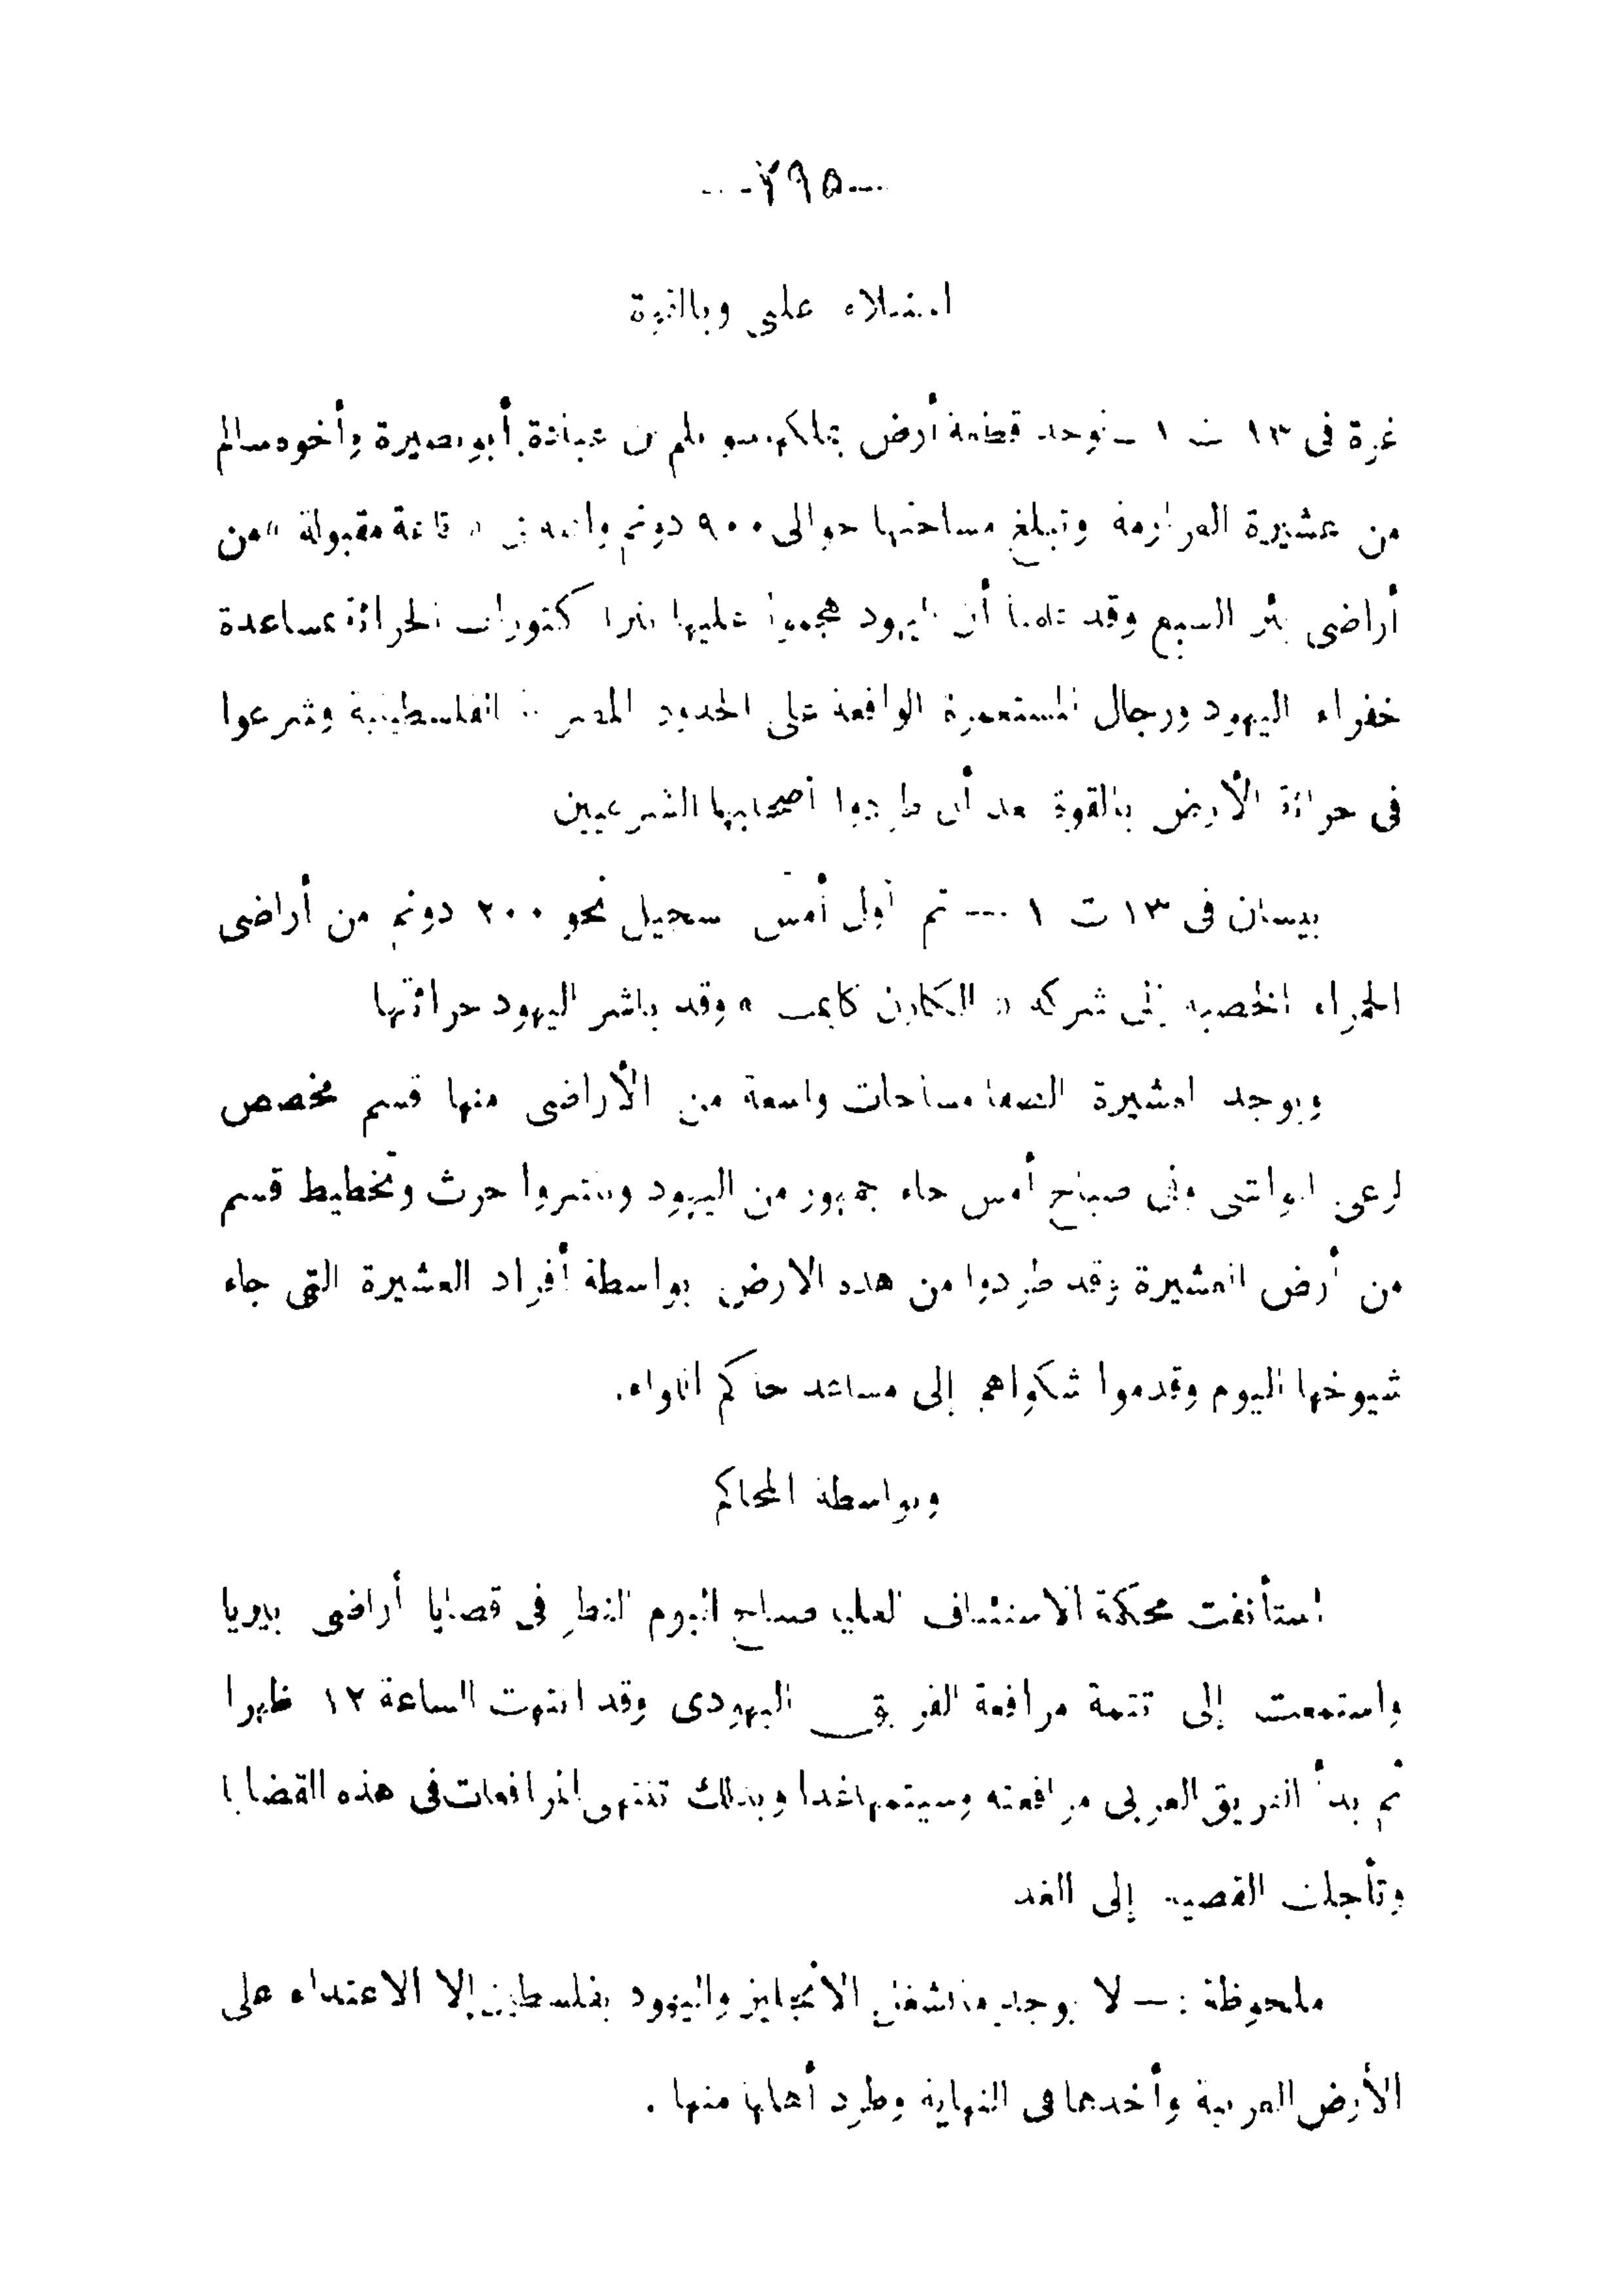 —٢٩٥—
استيلاء علني وبالقوة
غزة فى ١٣ ت ١ — توجد قطعة أرض يملكها سويلم بن عيادة أبو بصيرة وأخوه سالم
من عشيرة العزازمة وتبلغ مساحتها حوالى ٩٠٠ دونم واقعة فى « قاعة مقبولة » من
أراضى بئر السبع وقد علمنا أن اليهود هجموا عليها بتراكتورات الحراثة بمساعدة
خفراء اليهود ورجال المستعمرة الواقعة على الحدود المصرية الفلسطينية وشرعوا
فى حراثة الأرض بالقوة بعد أن طردوا أصحابها الشرعيين
بيسان فى ١٣ ت ١ — تم أول أمس تسجيل نحو ٢٠٠ دونم من أراضى
الحمراء الخصبة إلى شركة « الكارن كايمت » وقد باشر اليهود حراثتها
ويوجد لعشيرة الصقر مساحات واسعة من الأراضى منها قسم مخصص
لرعى المواشى وفى صباح أمس جاء جمهور من اليهود وباشروا حرث وتخطيط قسم
من أرض العشيرة وقد طردوا من هذه الارض بواسطة أفراد العشيرة التى جاء
شيوخها اليوم وقدموا شكواهم إلى مساعد حاكم اللواء.
وبواسطة المحاكم
استأنفت محكمة الاستئناف العليا صباح اليوم النظر فى قضايا أراضى بيريا
واستمعت إلى تتمة مرافعة الفريق اليهودى وقد انتهت الساعة ١٢ ظهرا
ثم بدأ الفريق العربى مرافعته وسيتمها غدا وبذلك تنتهى المرافعات فى هذه القضايا
وتأجلت القضية إلى الغد
ملحوظة : — لا يوجد ما يشغل الانجليز واليهود بفلسطين إلا الاعتداء على
الأرض العربية وأخذها فى النهاية وطرد أهلها منها .